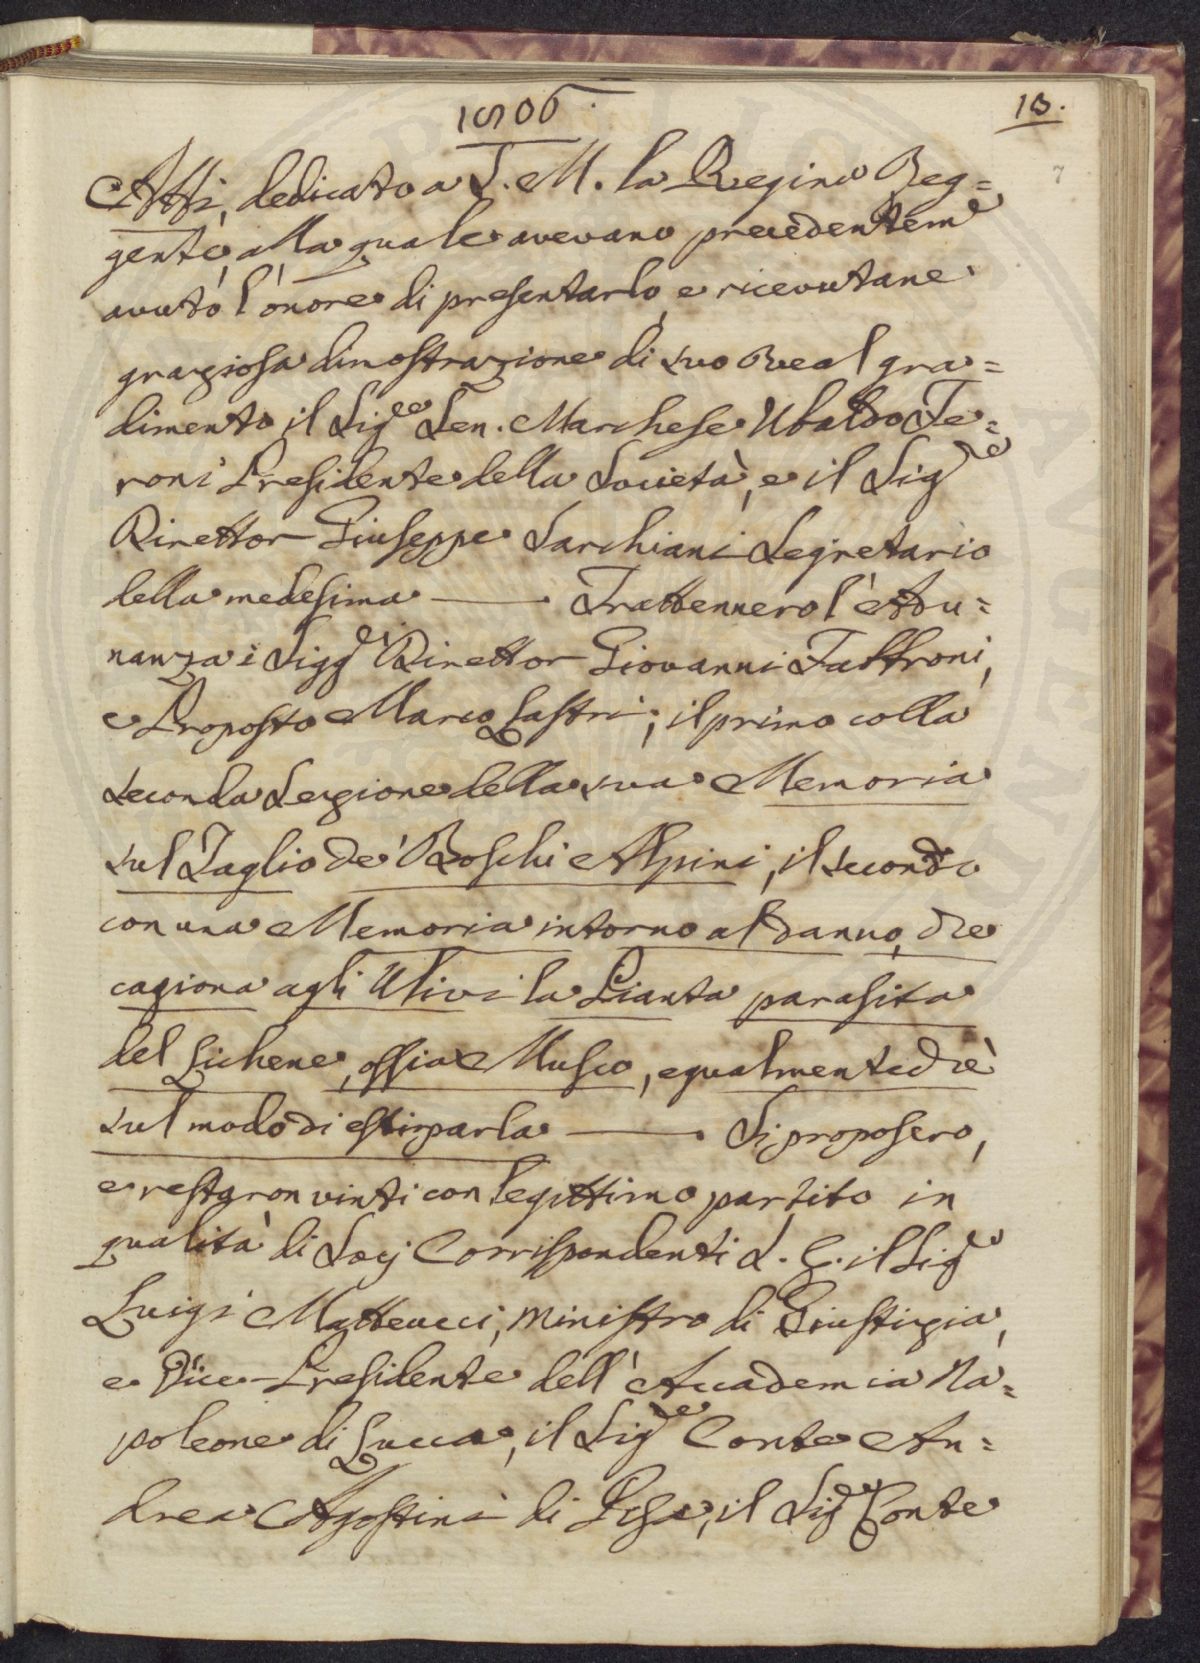 1806.
13.
7
Atti, dedicato a S. M. la Regina Reg=
gente, alla quale avevano precedentem.e
avuto l'onore di presentarlo, e ricevutane
graziosa dimostrazione di suo Real gra=
dimento il Sig.re Sen. Marchese Ubaldo Fe=
roni Presidente della Società, e il Sig.re
Direttor Giuseppe Sarchiani Segretario
della medesima —— . Trattennero l'Adu=
nanza i Sigg.ri Direttor Giovanni Fabbroni,
e Proposto Marco Lastri; il primo colla
seconda Lezione della sua Memoria
sul Taglio de' Boschi Alpini, il secondo
con una Memoria intorno al danno, che
cagiona agli Ulivi la Pianta parasita
del Lichene, ossia Musco, egualmente che
sul modo di estirparla —— . Si proposero,
e restaron vinti con legittimo partito in
qualità di Socj Corrispondenti S. E. il Sig.re
Luigi Matteucci, Ministro di Giustizia,
e Vice-Presidente dell'Accademia Na=
poleone di Lucca, il Sig.re Conte An=
drea Agostini di Pisa, il Sig.re Conte